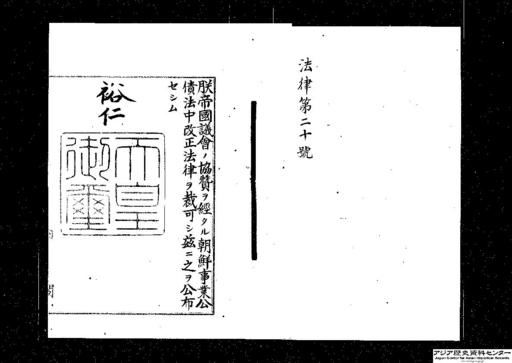 法律第二十號
朕帝國議會ノ協贊ヲ經タル朝鮮事業公
債法中改正法律ヲ裁可シ茲ニ之ヲ公布
セシム
裕仁
天皇
御璽
アジア歴史資料センター
Japan Center for Asian Historical Records